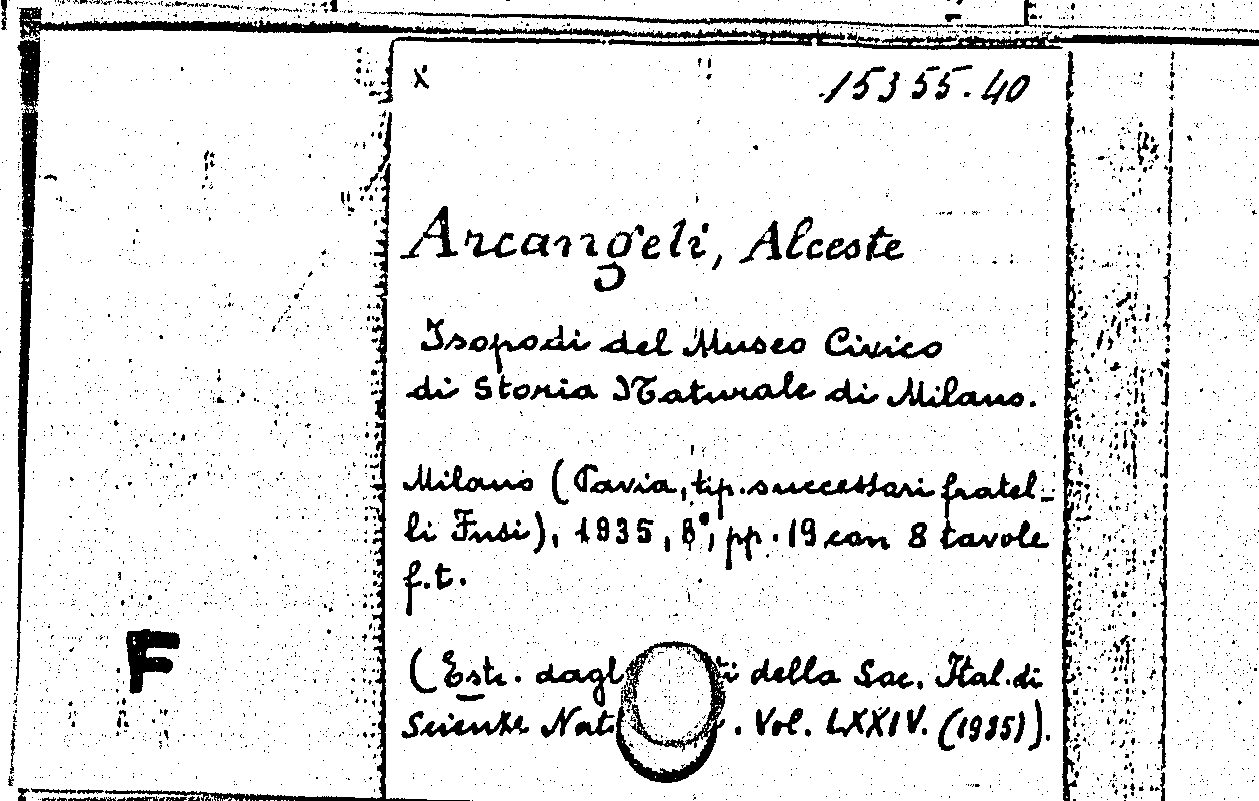 x 15355.40
Arcangeli, Alceste
Isopodi del Museo Civico
di Storia Naturale di Milano.
Milano (Pavia, tip. successori fratel-
li Fusi), 1935, 8°, pp. 19 con 8 tavole
f.t.
F
(Estr. dagl ti della Soc. Ital. di
Scienze Nat . Vol. LXXIV. (1935)).